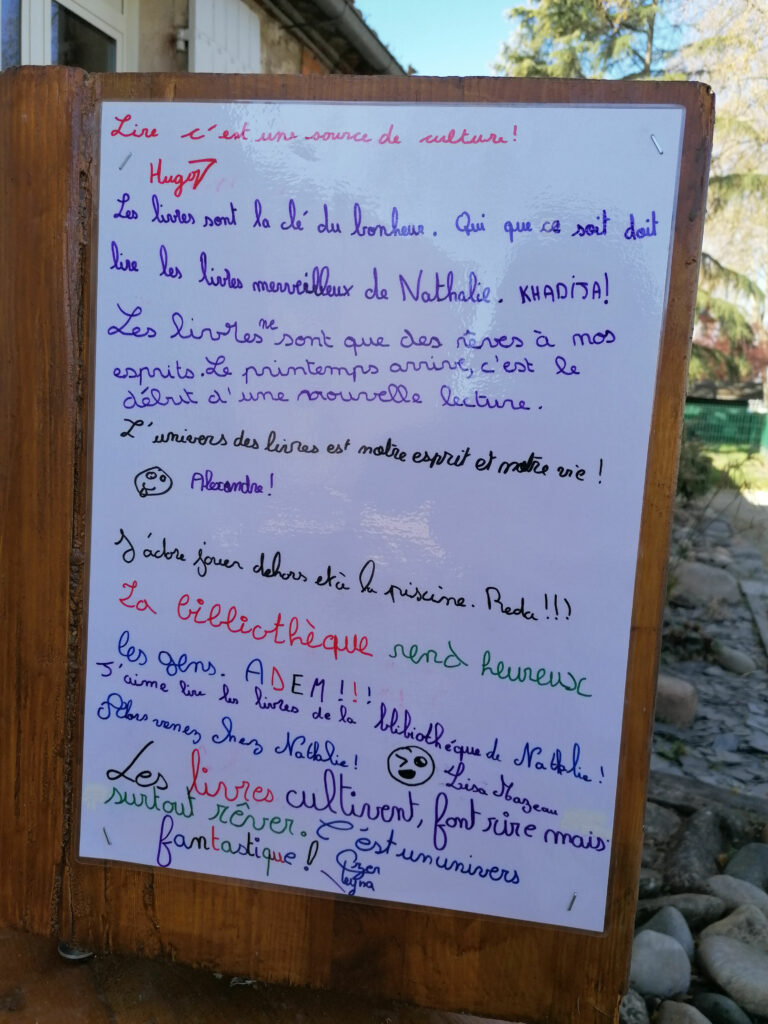 Lire c'est une source de culture!
Hugo
Les livres sont la clé du bonheur. Qui que ce soit doit
lire les livres merveilleux de Nathalie. KHADIJA!
Les livres ne sont que des rêves à nos
esprits. Le printemps arrive, c'est le
début d'une nouvelle lecture.
L'univers des livres est notre esprit et notre vie !
Alexandre!
J'adore jouer dehors et à la piscine. Reda !!!
La bibliothèque rend heureux
les gens. ADEM !!!
J'aime lire les livres de la blibiothéque de Nathalie!
Alors venez chez Nathalie!
Lisa Mazeau
Les livres cultivent, font rire mais
surtout rêver. C'est un univers
fantastique !